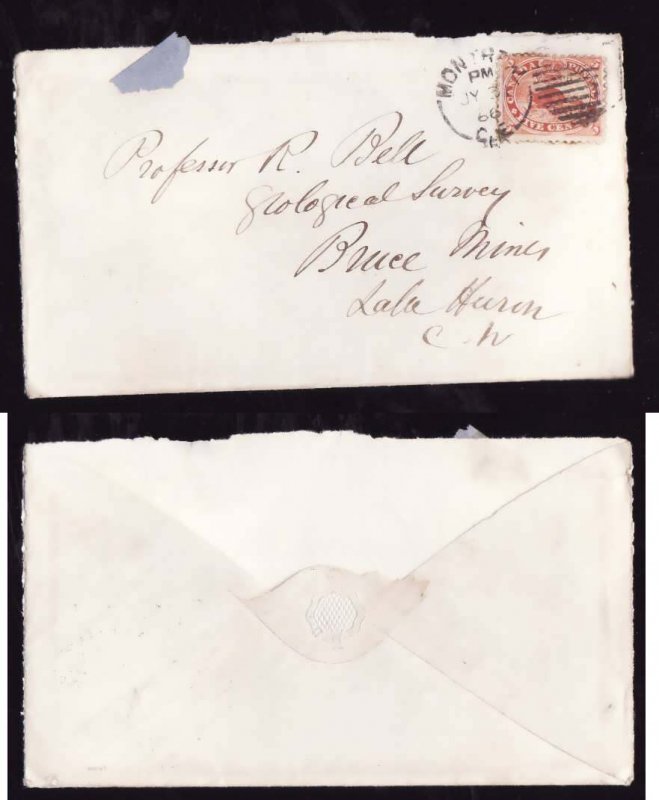 MONTR
PM
JY
66
C.E
CANADA POSTAGE
FIVE CENTS
5
5
Professor R. Bell
Geological Survey
Bruce Mines
Lake Huron
C. W